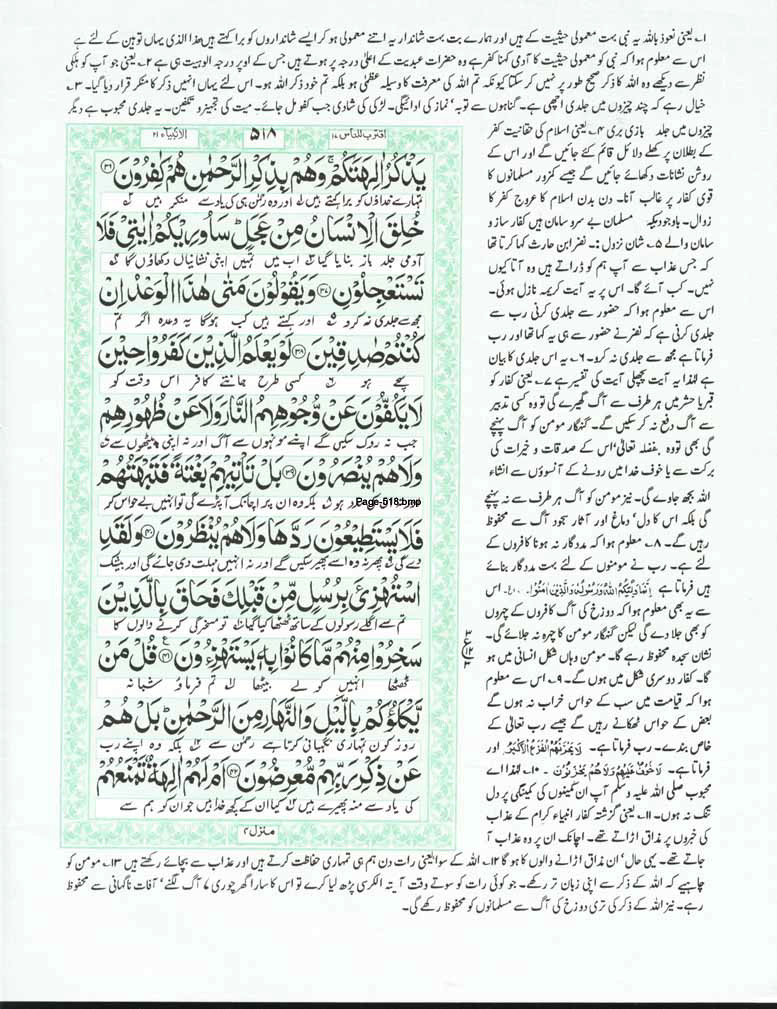 ۱۔ یعنی نعوذ باللہ یہ نبی بہت معمولی حیثیت کے ہیں اور ہمارے بت بہت شاندار یہ اتنے معمولی ہو کر ایسے شانداروں کو برا کہتے ہیں ھذا الذی یہاں توہین کے لئے ہے
اس سے معلوم ہوا کہ نبی کو معمولی حیثیت کا آدمی کہنا کفر ہے وہ حضرات عبدیت کے اعلیٰ درجہ پر ہوتے ہیں جس کے اوپر درجہ الوہیت ہی ہے ۲۔ یعنی جو آپ کو ہلکی
نظر سے دیکھے وہ اللہ کا ذکر صحیح طور پر نہیں کر سکتا کیونکہ تم اللہ کی معرفت کا وسیلہ عظمیٰ ہو بلکہ تم خود ذکر اللہ ہو۔ اس لئے یہاں انہیں ذکر کا منکر قرار دیا گیا۔ ۳۔
خیال رہے کہ چند چیزوں میں جلدی اچھی ہے۔ گناہوں سے توبہ' نماز کی ادائیگی۔ لڑکی کی شادی جب کفو مل جائے۔ میت کی تجہیز و تکفین۔ یہ جلدی محبوب ہے دیگر
چیزوں میں جلد بازی بری ۴۔ یعنی اسلام کی حقانیت کفر
کے بطلان پر کھلے دلائل قائم کئے جائیں گے اور اس کے
روشن نشانات دکھائے جائیں گے جیسے کمزور مسلمانوں کا
قوی کفار پر غالب آنا۔ دن بدن اسلام کا عروج کفر کا
زوال۔ باوجودیکہ مسلمان بے سرو سامان ہیں کفار ساز و
سامان والے ۵۔ شان نزول :۔ نضر ابن حارث کہا کرتا تھا
کہ جس عذاب سے آپ ہم کو ڈراتے ہیں وہ آتا کیوں
نہیں۔ کب آئے گا۔ اس پر یہ آیت کریمہ نازل ہوئی۔
اس سے معلوم ہوا کہ حضور سے جلدی کرنی رب سے
جلدی کرنی ہے کہ نضر نے حضور سے ہی یہ کہا تھا اور رب
فرماتا ہے مجھ سے جلدی نہ کرو۔ ۶۔ یہ اس جلدی کا بیان
ہے لہذا یہ آیت پچھلی آیت کی تفسیر ہے ۷۔ یعنی کفار کو
قبر یا حشر میں ہر طرف سے آگ گھیرے گی تو وہ کسی تدبیر
سے آگ دفع نہ کر سکیں گے۔ گنہگار مومن کو آگ پہنچے
گی بھی تو وہ بفضلہ تعالیٰ' اس کے صدقات و خیرات کی
برکت سے یا خوف خدا میں رونے کے آنسوؤں سے انشاء
اللہ بجھ جاوے گی۔ نیز مومن کو آگ ہر طرف سے نہ پہنچے
گی بلکہ اس کا دل' دماغ اور آثار سجود آگ سے محفوظ
رہیں گے۔ ۸۔ معلوم ہوا کہ مددگار نہ ہونا کافروں کے
لئے ہے۔ رب نے مومنوں کے لئے بہت مددگار بنائے
ہیں فرماتا ہے اِنَّمَا وَلِيُّكُمُ اللهُ وَرَسُوْلُهُ وَالَّذِيْنَ اٰمَنُوْا۔ الخ۔ اس
سے یہ بھی معلوم ہوا کہ دوزخ کی آگ کافروں کے چہروں
کو بھی جلا دے گی لیکن گنہگار مومن کا چہرہ نہ جلائے گی۔
نشان سجدہ محفوظ رہے گا۔ مومن وہاں شکل انسانی میں ہو
گا۔ کفار دوسری شکل میں ہوں گے۔ ۹۔ اس سے معلوم
ہوا کہ قیامت میں سب کے حواس خراب نہ ہوں گے
بعض کے حواس ٹھکانے رہیں گے جیسے رب تعالیٰ کے
خاص بندے۔ رب فرماتا ہے۔ لَا يَحْزُنُهُمُ الْفَزَعُ الْاَكْبَرُ اور
فرماتا ہے۔ لَا خَوْفٌ عَلَيْهِمْ وَلَا هُمْ يَحْزَنُوْنَ ۔ ۱۰۔ لہذا اے
محبوب صلی اللہ علیہ وسلم آپ ان کمینوں کی کمینگی پر دل
تنگ نہ ہوں۔ ۱۱۔ یعنی گزشتہ کفار انبیاء کرام کے عذاب
کی خبروں پر مذاق اڑاتے تھے۔ اچانک ان پر وہ عذاب آ
جاتے تھے۔ یہی حال' ان مذاق اڑانے والوں کا ہو گا ۱۲۔ اللہ کے سوا یعنی رات دن ہم ہی تمہاری حفاظت کرتے ہیں اور عذاب سے بچائے رکھتے ہیں ۱۳۔ مومن کو
چاہیے کہ اللہ کے ذکر سے اپنی زبان تر رکھے۔ جو کوئی رات کو سوتے وقت آیتہ الکرسی پڑھ لیا کرے تو اس کا سارا گھر چوری' آگ لگنے' آفات ناگہانی سے محفوظ
رہے۔ نیز اللہ کے ذکر کی تری دوزخ کی آگ سے مسلمانوں کو محفوظ رکھے گی۔
اقترب للناس ۱۷ ۵۱۸ الانبیاء ۲۱
يَذْكُرُ اٰلِهَتَكُمْ ۚ وَهُمْ بِذِكْرِ الرَّحْمٰنِ هُمْ كٰفِرُوْنَ ۝۳۶
تمہارے خداؤں کو برا کہتے ہیں اور وہ رحمٰن ہی کی یاد سے منکر ہیں
خُلِقَ الْاِنْسَانُ مِنْ عَجَلٍ ؕ سَاُورِيْكُمْ اٰيٰتِيْ فَلَا
آدمی جلد باز بنایا گیا اب میں تمہیں اپنی نشانیاں دکھاؤں گا
تَسْتَعْجِلُوْنِ ۝۳۷ وَيَقُوْلُوْنَ مَتٰى هٰذَا الْوَعْدُ اِنْ
مجھ سے جلدی نہ کرو اور کہتے ہیں کب ہوگا یہ وعدہ اگر تم
كُنْتُمْ صٰدِقِيْنَ ۝۳۸ لَوْ يَعْلَمُ الَّذِيْنَ كَفَرُوْا حِيْنَ
سچے ہو کسی طرح جانتے کافر اس وقت کو
لَا يَكُفُّوْنَ عَنْ وُّجُوْهِهِمُ النَّارَ وَلَا عَنْ ظُهُوْرِهِمْ
جب نہ روک سکیں گے اپنے مونہوں سے آگ اور نہ اپنی پیٹھوں سے
وَلَا هُمْ يُنْصَرُوْنَ ۝۳۹ بَلْ تَاْتِيْهِمْ بَغْتَةً فَتَبْهَتُهُمْ
ہو بلکہ وہ ان پر اچانک آ پڑے گی تو انہیں بے حواس کر
Page-518.bmp
فَلَا يَسْتَطِيْعُوْنَ رَدَّهَا وَلَا هُمْ يُنْظَرُوْنَ ۝۴۰ وَلَقَدِ
دے گی پھر نہ وہ اسے پھیر سکیں گے اور نہ انہیں مہلت دی جائے گی اور بیشک
اسْتُهْزِئَ بِرُسُلٍ مِّنْ قَبْلِكَ فَحَاقَ بِالَّذِيْنَ
تم سے اگلے رسولوں کے ساتھ ٹھٹھا کیا گیا تو مسخرگی کرنے والوں کا
سَخِرُوْا مِنْهُمْ مَّا كَانُوْا بِهٖ يَسْتَهْزِءُوْنَ ۝۴۱ قُلْ مَنْ
ٹھٹھا انہیں کو لے بیٹھا تم فرماؤ شبانہ
يَّكْلَؤُكُمْ بِالَّيْلِ وَالنَّهَارِ مِنَ الرَّحْمٰنِ ؕ بَلْ هُمْ
روز کون تمہاری نگہبانی کرتا ہے رحمٰن سے بلکہ وہ اپنے رب
عَنْ ذِكْرِ رَبِّهِمْ مُّعْرِضُوْنَ ۝۴۲ اَمْ لَهُمْ اٰلِهَةٌ تَمْنَعُهُمْ
کی یاد سے منہ پھیرے ہیں کیا ان کے کچھ خدا ہیں جو ان کو ہم سے
منزل ۴